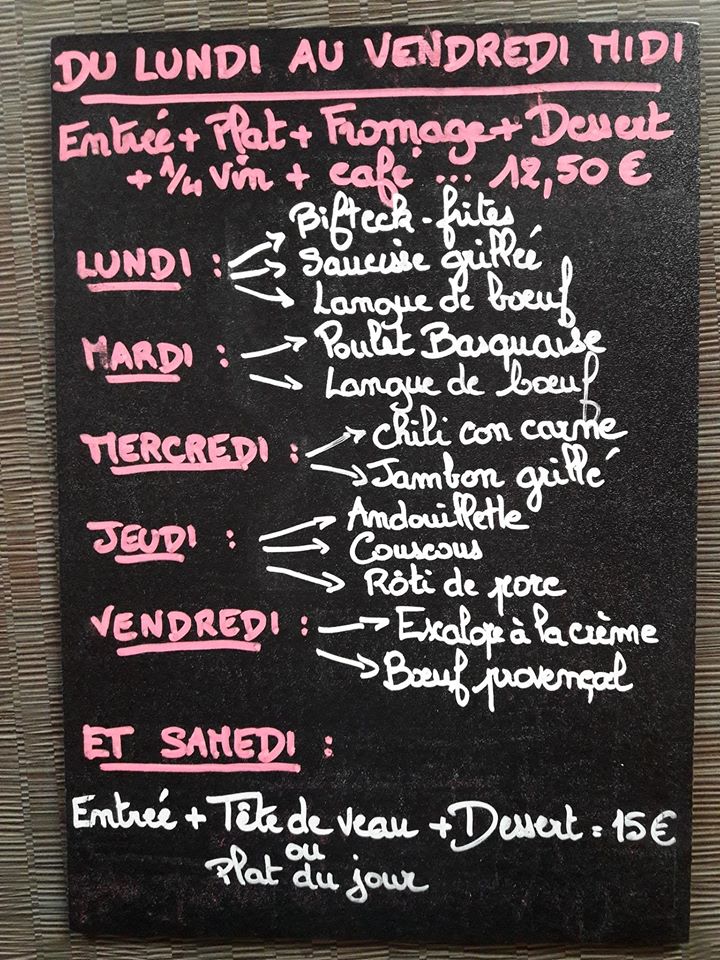 DU LUNDI AU VENDREDI MIDI
Entrée + Plat + Fromage + Dessert
+ 1/4 vin + café ... 12,50 €
LUNDI : Bifteck-frites
Saucisse grillée
Langue de bœuf
MARDI : Poulet Basquaise
Langue de bœuf
MERCREDI : Chili con carne
Jambon grillé
JEUDI : Andouillette
Couscous
Rôti de porc
VENDREDI : Exalope à la crème
Bœuf provençal
ET SAMEDI :
Entrée + Tête de veau + Dessert = 15 €
ou
Plat du jour